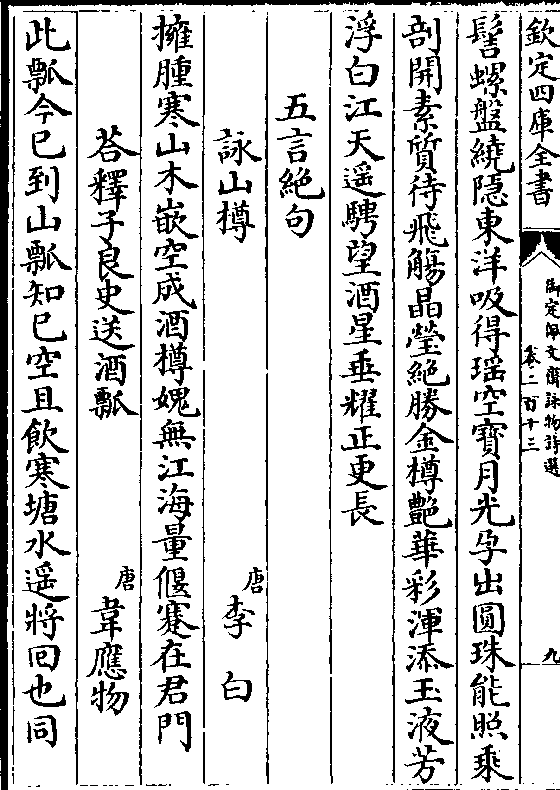 欽定四庫全書
御定佩文齋詠物詩選
卷二百十三
九
髻螺盤繞隱東洋吸得瑶空寶月光孕出圓珠能照乘
剖開素質待飛觴晶瑩絶勝金樽艶華彩渾添玉液芳
浮白江天遥騁望酒星垂耀正更長
五言絶句
詠山樽
唐李白
擁腫寒山木嵌空成酒樽媿無江海量偃蹇在君門
荅釋子良史送酒瓢
唐韋應物
此瓢今已到山瓢知已空且飲寒塘水遥將回也同